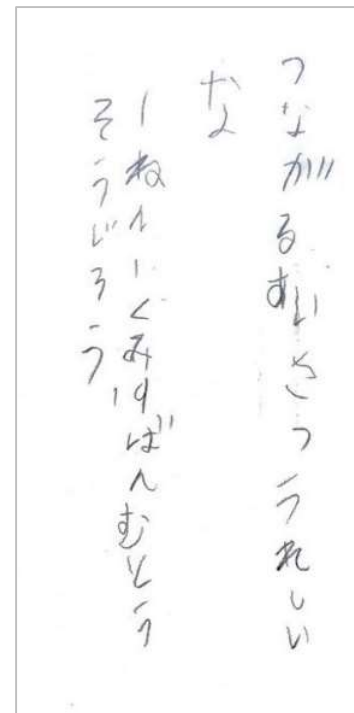 つながるあいさつうれしい
な
1ねん1くみ19ばんむとう
そうじろう